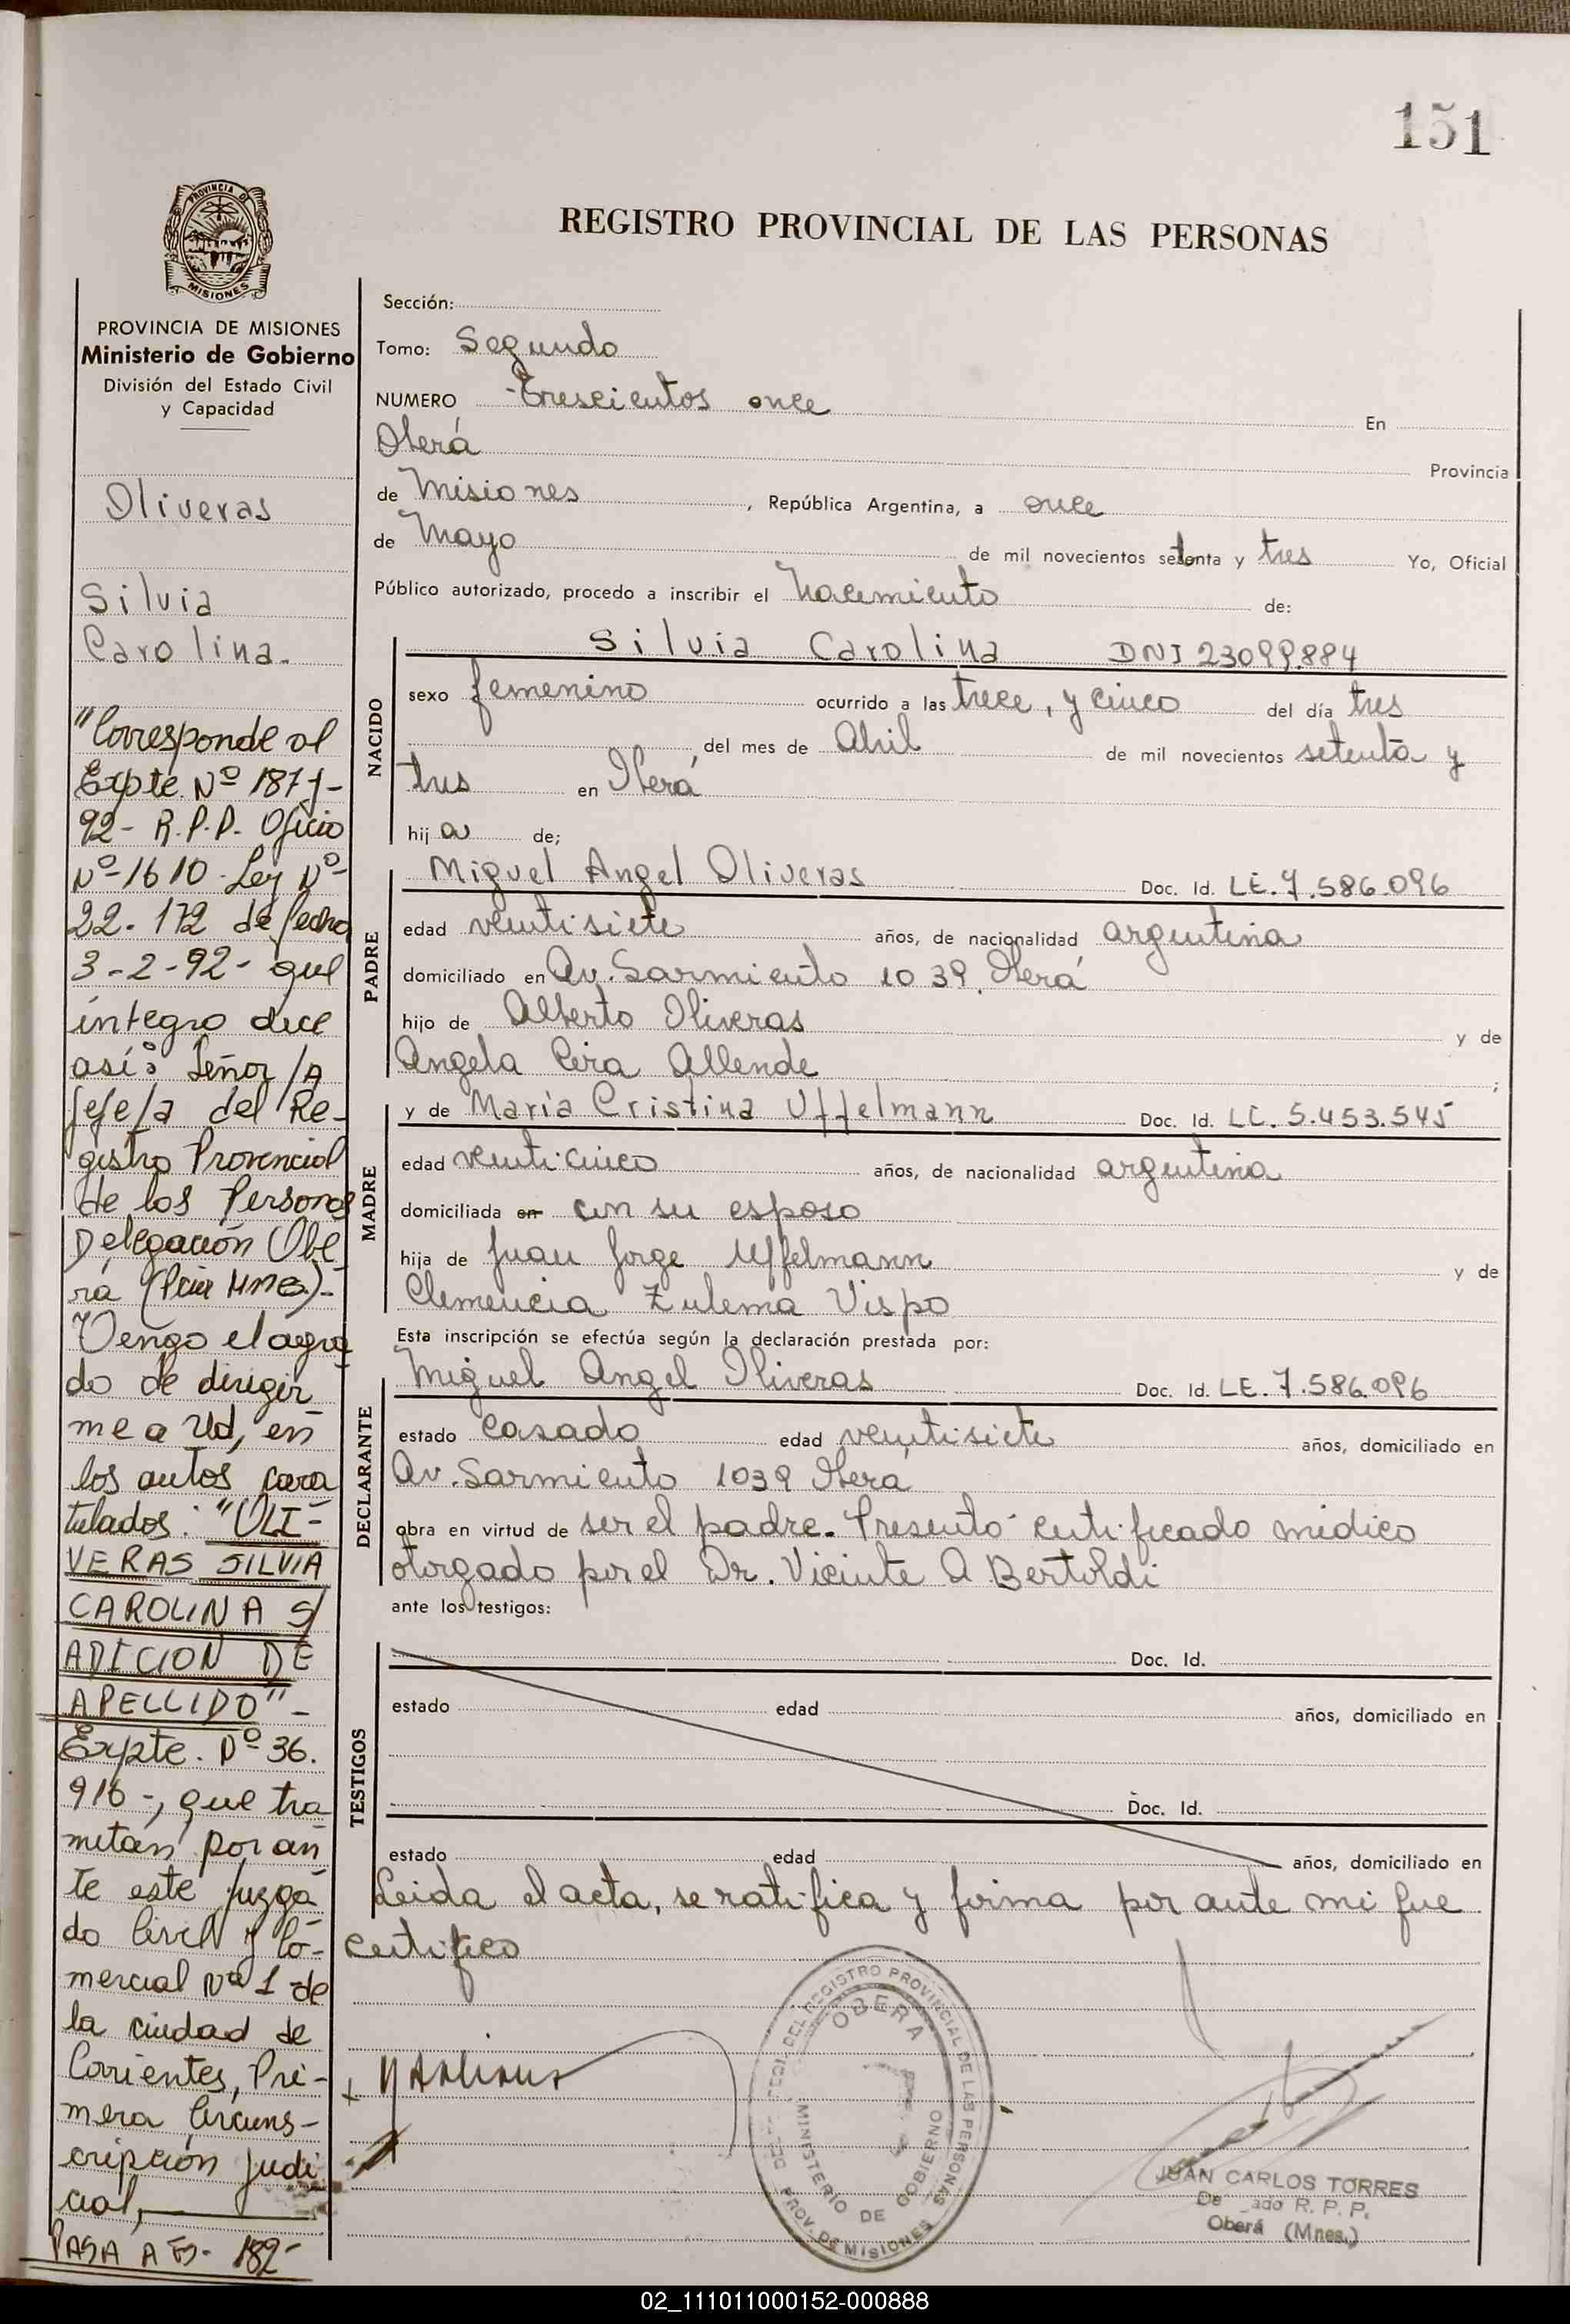 151
PROVINCIA DE
MISIONES
REGISTRO PROVINCIAL DE LAS PERSONAS
PROVINCIA DE MISIONES
Ministerio de Gobierno
División del Estado Civil
y Capacidad
Oliveras
Silvia
Carolina.
"Corresponde al
Expte. Nº 1877-
92- R.P.P. Oficio
Nº 1610 - Ley Nº
22.172 de fecha
3-2-92- que
integro dice
así: Señor/A
Jefe/a del Re-
gistro Provincial
de las Personas
Delegación Obe
rá (Pcia Mnes.)-
Tengo el agra
do de dirigir
me a Ud, en
los autos cara
tulados: "OLI-
VERAS SILVIA
CAROLINA S/
ADICION DE
APELLIDO"-
Expte. Nº 36.
916-, que tra
mitan por an
te este Juzga
do Civil y Co-
mercial Nº 1 de
la ciudad de
Corrientes, Pri-
mera Circuns-
cripción Judi
cial,
PASA A FS- 182-
Sección:
Tomo: Segundo
NUMERO Trescientos once En
Oberá Provincia
de Misiones, República Argentina, a once
de Mayo de mil novecientos setenta y tres Yo, Oficial
Público autorizado, procedo a inscribir el Nacimiento de:
NACIDO
Silvia Carolina DNI 23099.884
sexo femenino ocurrido a las trece, y cinco del día tres
del mes de Abril de mil novecientos setenta y
tres en Oberá
hij a de;
PADRE
Miguel Angel Oliveras Doc. Id. LE. 7.586.096
edad veintisiete años, de nacionalidad argentina
domiciliado en Av. Sarmiento 1039, Oberá
hijo de Alberto Oliveras y de
Angela Allende;
MADRE
y de María Cristina Uffelmann Doc. Id. LC. 5.453.545
edad veinticinco años, de nacionalidad argentina
domiciliada en con su esposo
hija de Juan Jorge Uffelmann y de
Clemencia Zulema Vispo
Esta inscripción se efectúa según la declaración prestada por:
DECLARANTE
Miguel Angel Oliveras Doc. Id. LE. 7.586.096
estado casado edad veintisiete años, domiciliado en
Av. Sarmiento 1039 Oberá
obra en virtud de ser el padre. Presentó certificado médico
otorgado por el Dr. Vicente A Bertoldi
ante los testigos:
TESTIGOS
Doc. Id.
estado edad años, domiciliado en
Doc. Id.
estado edad años, domiciliado en
Leida el acta, se ratifica y firma por ante mi que
certifico
DEL REGISTRO PROVINCIAL DE LAS PERSONAS
OBERA
MINISTERIO DE GOBIERNO
PROV. DE MISIONES
JUAN CARLOS TORRES
R. P. P.
Oberá (Mnes.)
02_111011000152-000888